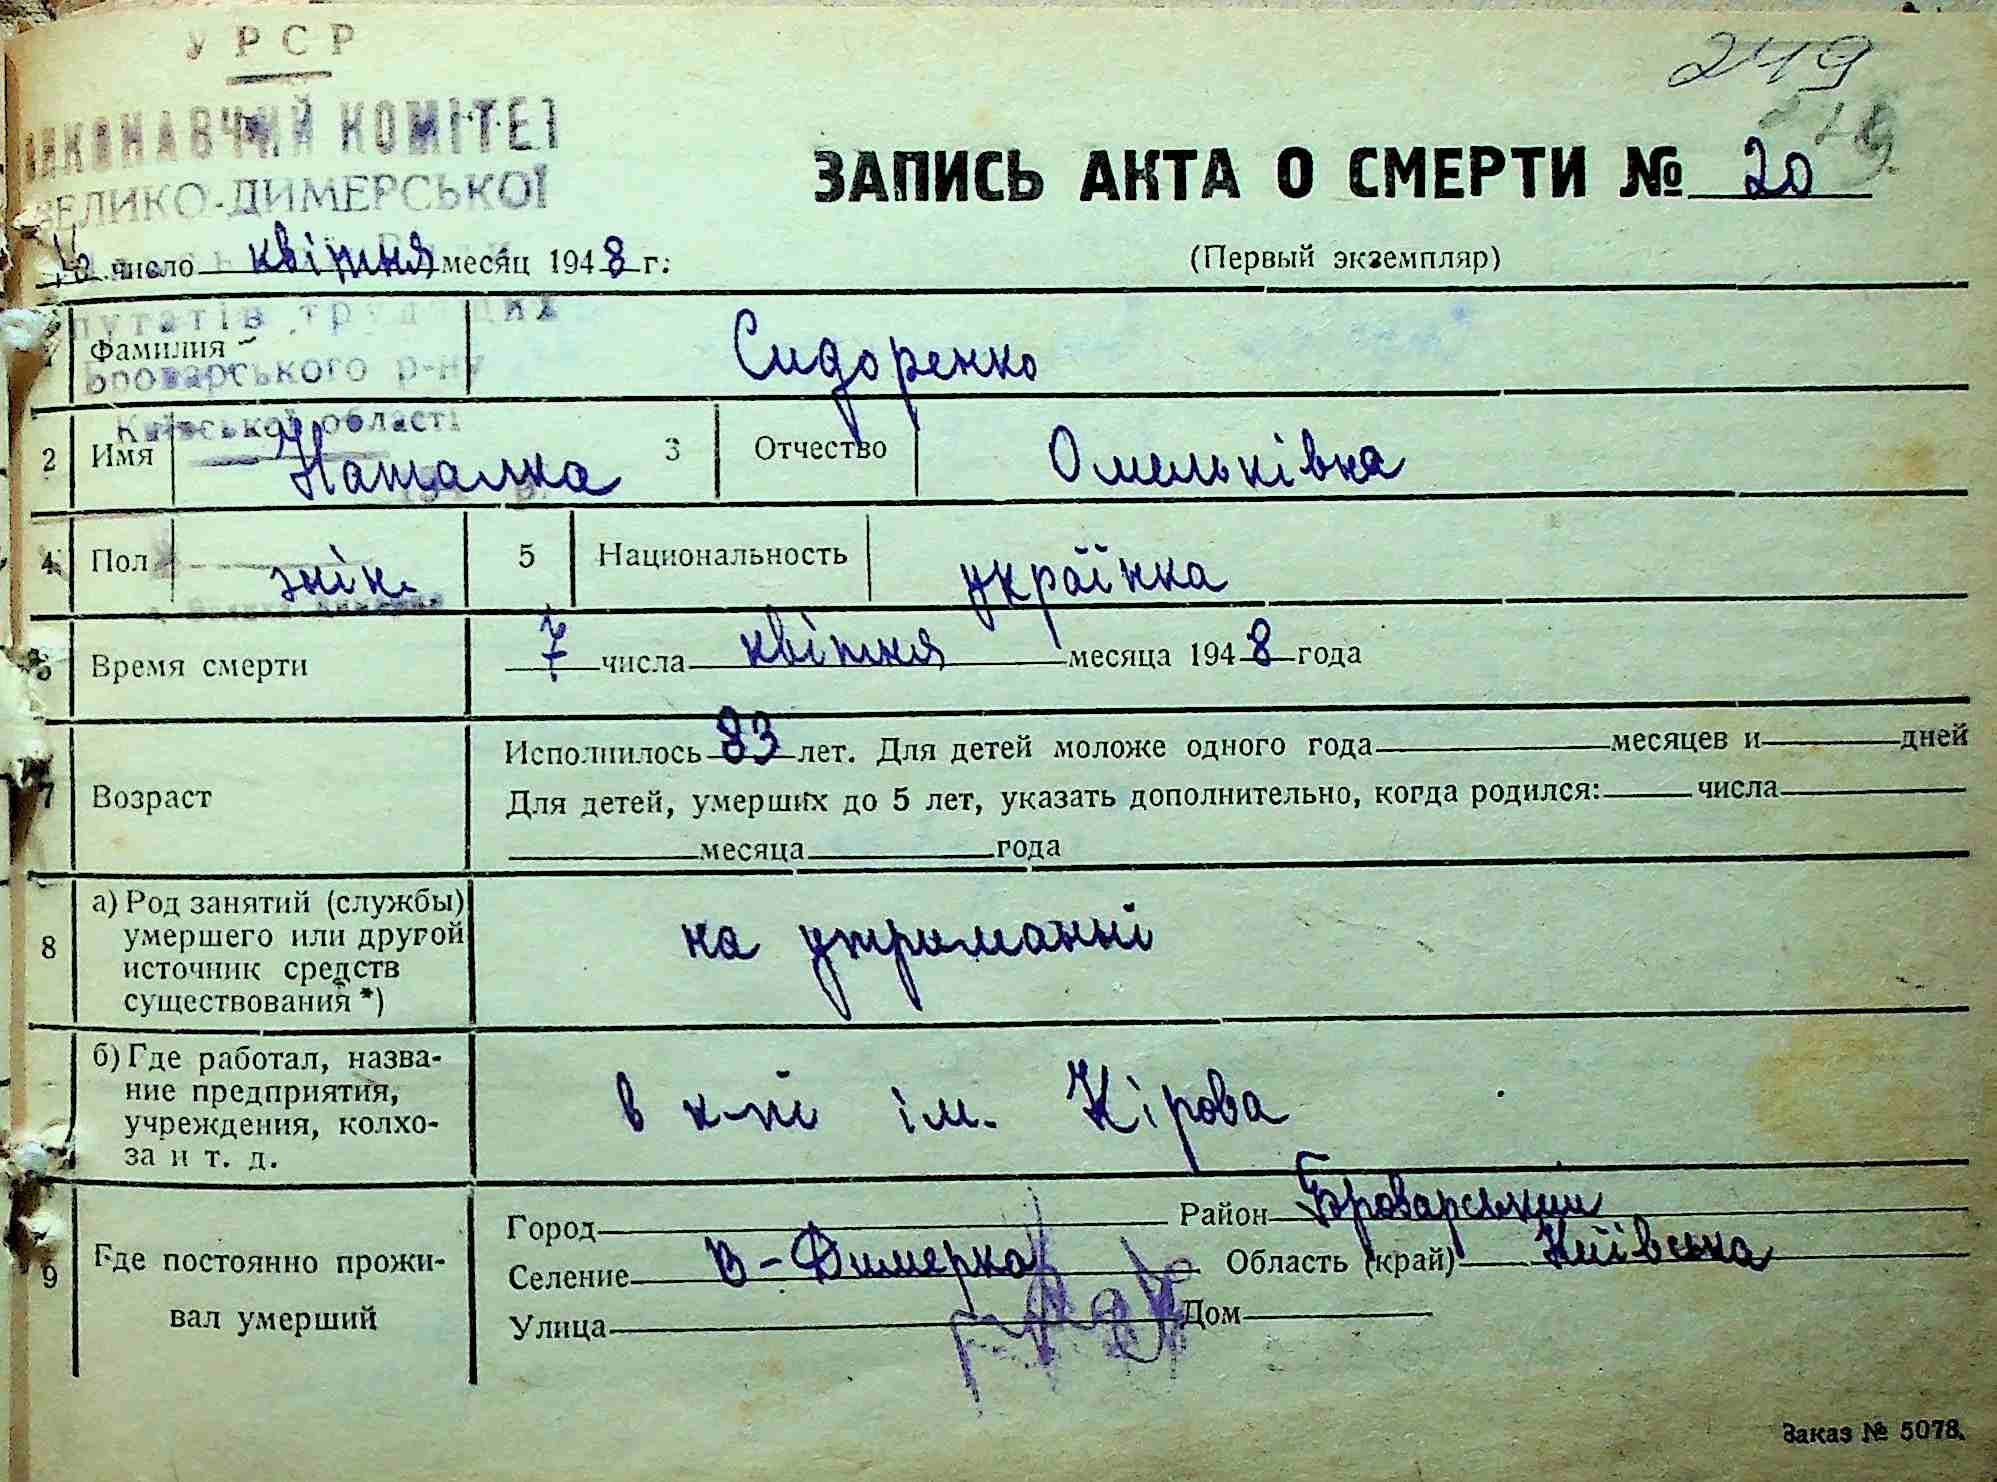 УРСР
249
ВИКОНАВЧИЙ КОМІТЕТ
ВЕЛИКО-ДИМЕРСЬКОЇ
ЗАПИСЬ АКТА О СМЕРТИ № 20
число квітня месяц 1948 г.
(Первый экземпляр)
путатів трудящих
1 Фамилия Сидоренко
Броварського р-ну
Київської області
2 Имя Наталка 3 Отчество Омельківна
4 Пол жін. 5 Национальность українка
6 Время смерти 7 числа квітня месяца 1948 года
7 Возраст
Исполнилось 83 лет. Для детей моложе одного года месяцев и дней
Для детей, умерших до 5 лет, указать дополнительно, когда родился: числа
месяца года
8 а) Род занятий (службы)
умершего или другой
источник средств
существования *)
на утриманні
б) Где работал, назва-
ние предприятия,
учреждения, колхо-
за и т. д.
в к-пі ім. Кірова
9 Где постоянно прожи-
вал умерший
Город Район Броварський
Селение В-Димерка Область (край) Київська
Улица Дом
Заказ № 5078.